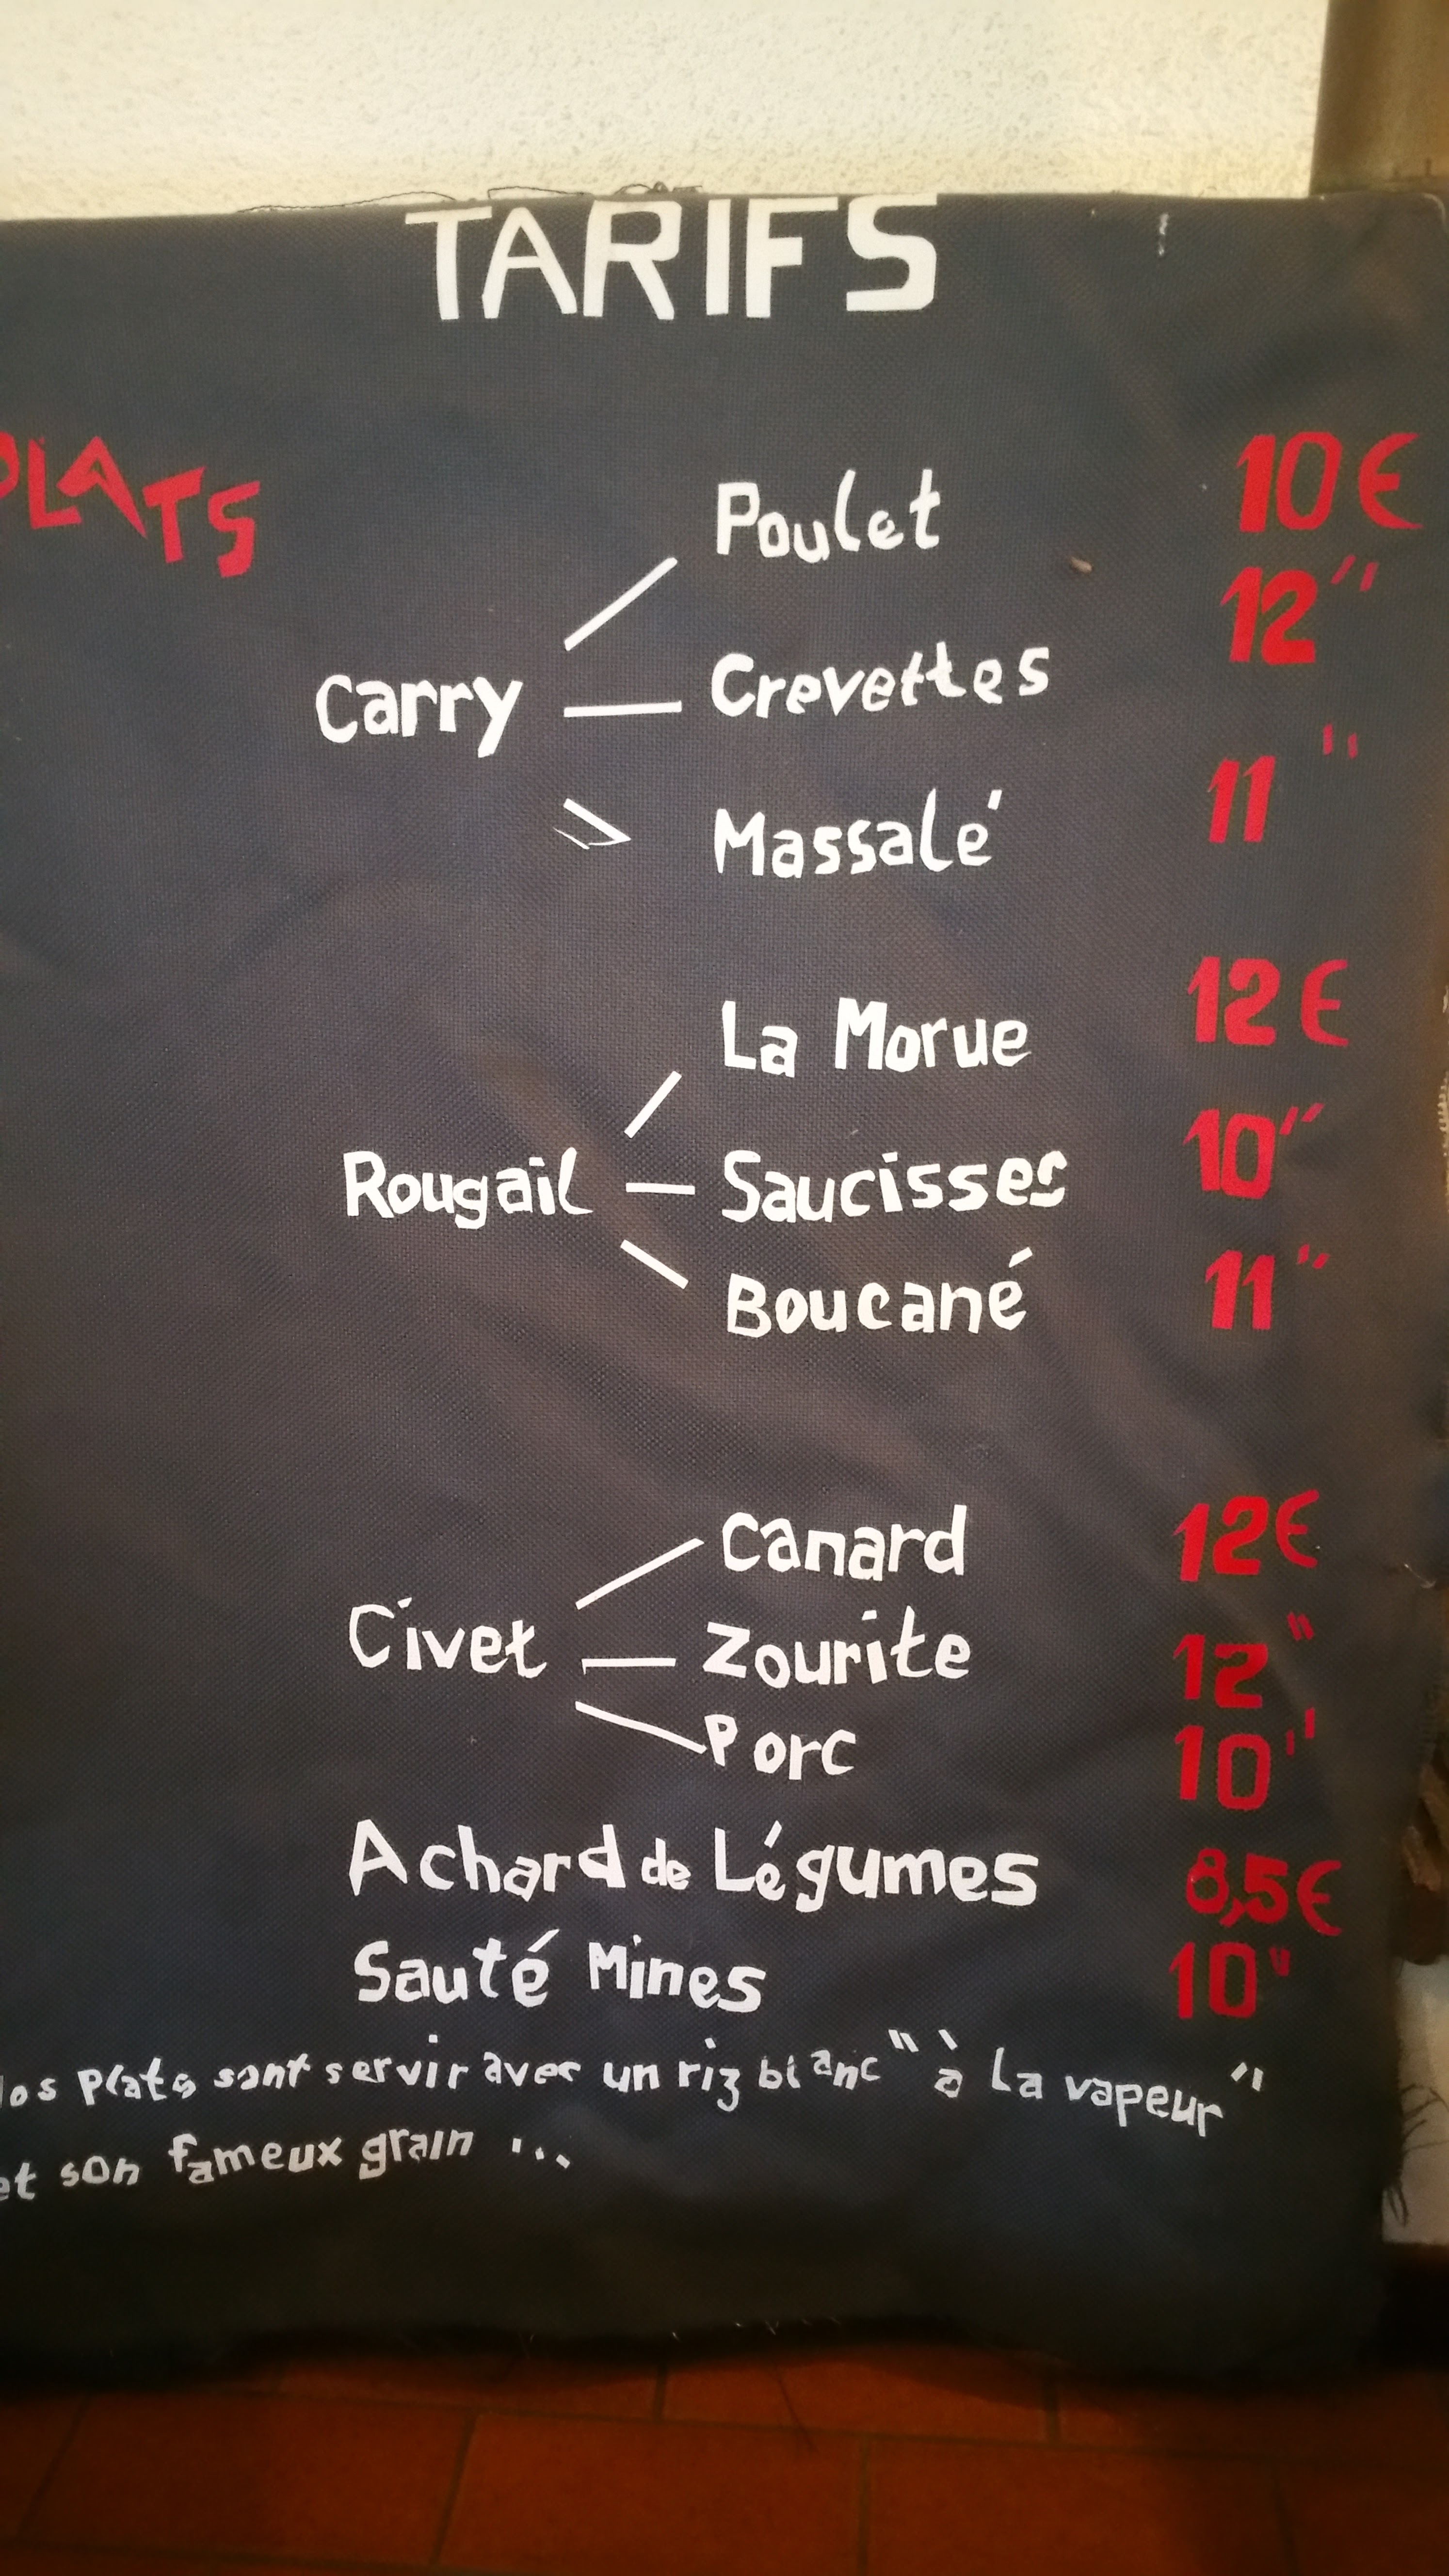 TARIFS
PLATS
Poulet 10€
Carry Crevettes 12"
Massalé 11"
La Morue 12€
Rougail Saucisses 10"
Boucané 11"
Canard 12€
Civet Zourite 12"
Porc 10"
Achard de Légumes 8,5€
Sauté Mines 10"
los plats sont servir avec un riz blanc "à La vapeur"
et son fameux grain ...